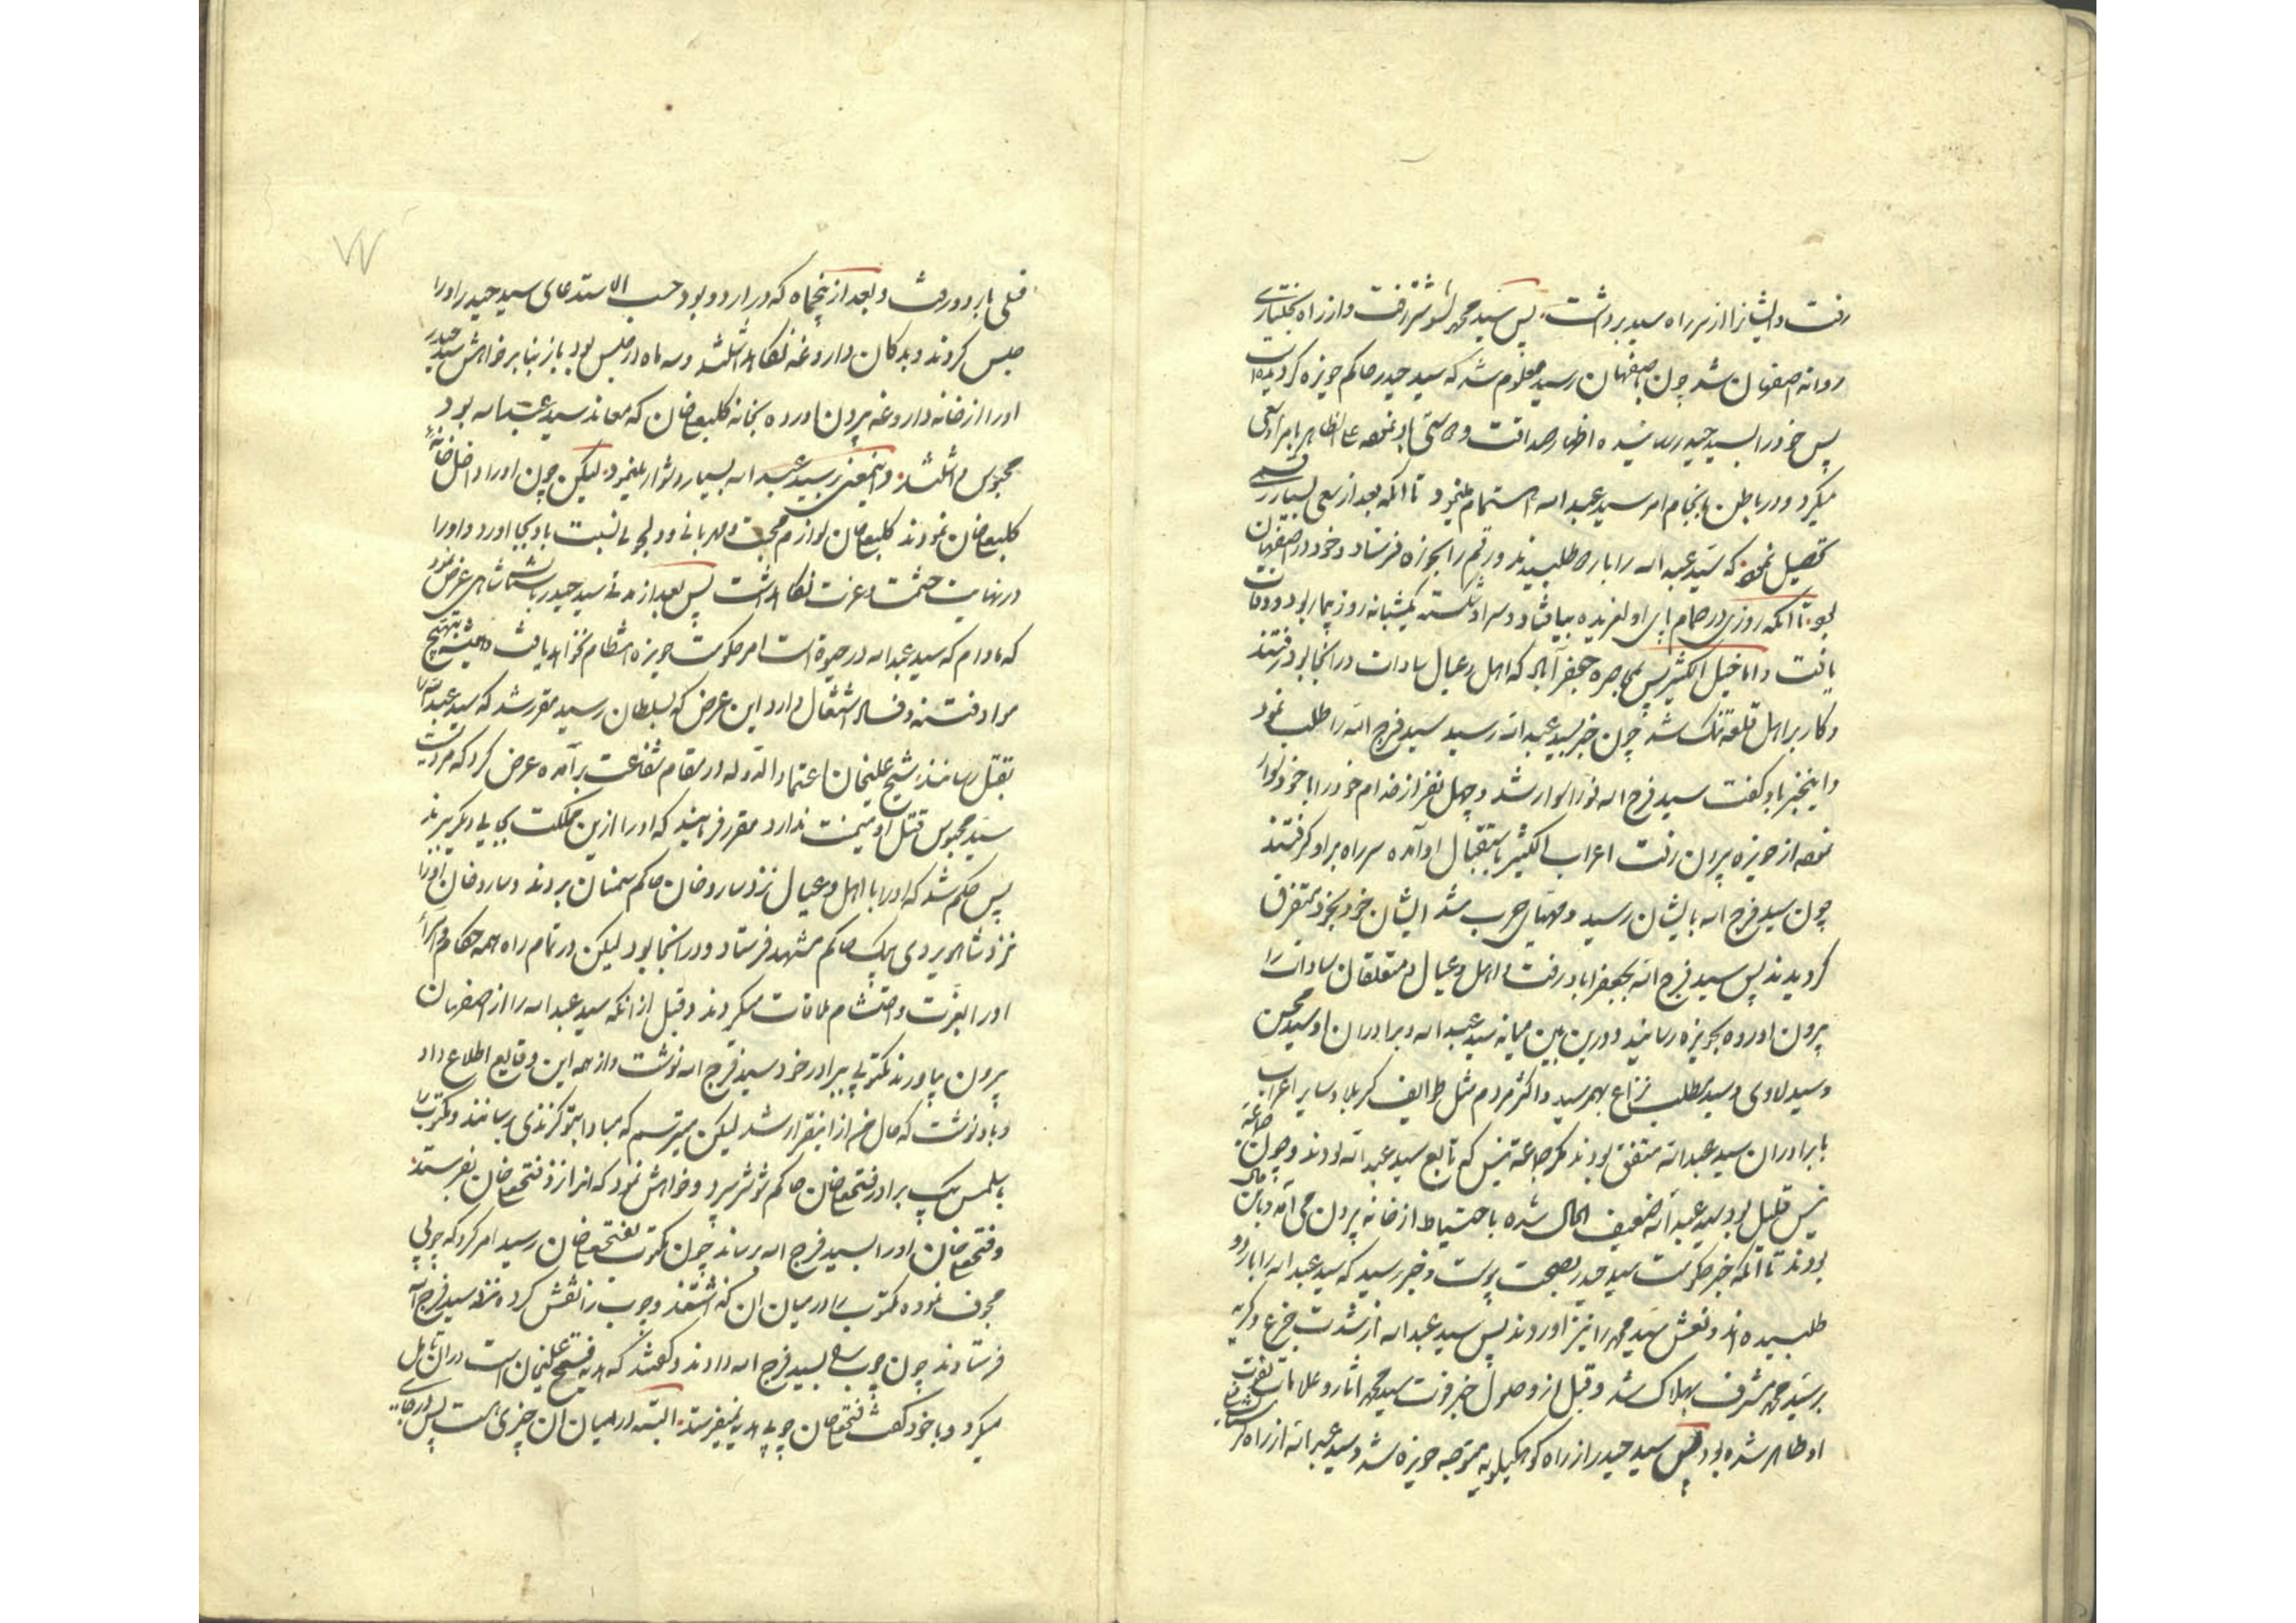 رفت و ایشانرا از سر راه سید برداشت پس سید محمد بشوشتر رفت و از راه بختیاری
روانه اصفهان شد چون باصفهان رسید معلوم شد که سید حیدر حاکم حویزه کردیده است
پس خود را بسید حیدر رسانیده اظهار صداقت و دوستی باو نموده علی الظاهر با مر او سعی
میکرد و در باطن بانجام امر سید عبد اله اهتمام مینمود تا انکه بعد از سعی بسیار رقمی
تحصیل نمود که سید عبد اله را باردو طلبیدند و رقم را بحویزه فرستاد و خود در اصفهان
بود تا انکه روزی در حمام پای او لغزیده بیافتاد و سر او شکسته یکشبانه روز بیمار بود و وفات
یافت و اما خیل الکثیر پس بمحاصره جعفرآباد که اهل و عیال سادات در انجا بود رفتند
و کار بر اهل قلعه تنک شد چون خبر بسید عبد اله رسید سید فرج اله را طلب نمود
و اینخبر باو کفت سید فرج اله فورا سوار شد و چهل نفر از خدام خود را با خود سوار
نموده از حویزه بیرون رفت اعراب الکثیر باستقبال او آمده سر راه بر او کرفتند
چون سید فرج اله بایشان رسید و مهیای حرب شد ایشان خود بخود متفرق
کردیدند پس سید فرج اله بجعفراباد رفت و اهل و عیال و متعلقان سادات را
بیرون اورده بحویزه رسانید و درین بین میانه سید عبد اله و برادران او سید محسن
و سید لاوی و سید مطلب نزاع بهمرسید و اکثر مردم مثل طوایف کربلا و سایر اعراب
با برادران سید عبد اله متفق بودند مکر جماعة نیس که تابع سید عبد اله بودند و چون جماعة
نیس قلیل بود سید عبد اله ضعیف الحال شده با احتیاط از خانه بیرون می آمد و باین حال
بودند تا انکه خبر حکومت سید حیدر بصحت پیوست و خبر رسید که سید عبد اله را باردو
طلبیده اند و نعش سید محمد را نیز اوردند پس سید عبد اله از شدت جزع و کریه
بر سید محمد مشرف بهلاک شد و قبل از وصول خبر فوت سید محمد اثار و علامات فوت
او ظاهر شده بود پس سید حیدر از راه کوهکیلویه متوجه حویزه شد و سید عبد اله از راه
قلی باردو رفت و بعد از پنجماه که در اردو بود حسب الاستدعای سید حیدر او را
حبس کردند و بدکان داروغه نکاه داشتند و سه ماه در حبس بود باز بنا بر خواهش سید حیدر
او را از خانه داروغه بیرون اورده بخانه کلبعلیخان که معاند سید عبد اله بود
محبوس داشتند و اینمعنی بر سید عبد اله بسیار دشوار مینمود لیکن چون او را داخل خانهٔ
کلبعلیخان نمودند کلبعلیخان لوازم محبت و مهربانی و دلجوئی نسبت باو بجا اورد و او را
در نهایت حشمت و عزت نکاه داشت پس بعد از مدتی سید حیدر پادشاه عرض نمود
که مادام که سید عبد اله در حیوة است امر حکومت حویزه انتظام نخواهد یافت و همیشه بتهیج
مواد فتنه و فساد اشتغال دارد این عرض که بسلطان رسید مقرر شد که سید عبد اله را
بقتل رسانند شیخ علیخان اعتماد الدوله در مقام شفاعت برآمده عرض کرد که مردیست
سید محبوس قتل او میمنت ندارد مقرر فرمایند که او را ازین مملکت بجایی دیکر ببرند
پس حکم شد که او را با اهل و عیال نزد ساروخان حاکم سمنان بردند و ساروخان او را
نزد شاهویردی بیک حاکم مشهد فرستاد و در انجا بود لیکن در تمام راه همه حکام و امرا
او را بعزت و احتشام ملاقات میکردند و قبل از انکه سید عبد اله را از اصفهان
بیرون بیاورند مکتوبی ببرادر خود سید فرج اله نوشت و از همه این وقایع اطلاع داد
و باو نوشت که مال من از اینقرار شد لیکن میترسم که مبادا بتو کزندی برسانند و مکتوب را
باسلمس بیک برادر فتحعلیخان حاکم شوشتر سپرد و خواهش نمود که انرا نزد فتحعلیخان بفرستد
و فتحعلیخان او را بسید فرج اله برساند چون مکتوب بفتحعلیخان رسید امر کرد که چوبی
مجوف نموده مکتوب را در میان ان کذاشتند و چوب را نقش کرده نزد سید فرج اله
فرستادند چون چوب را بسید فرج اله دادند و کفتند که هدیه فتحعلیخان است در ان تامل
میکرد و با خود کفت فتحعلیخان چوبی هدیه نمیفرستد البته در میان ان چیزی هست پس